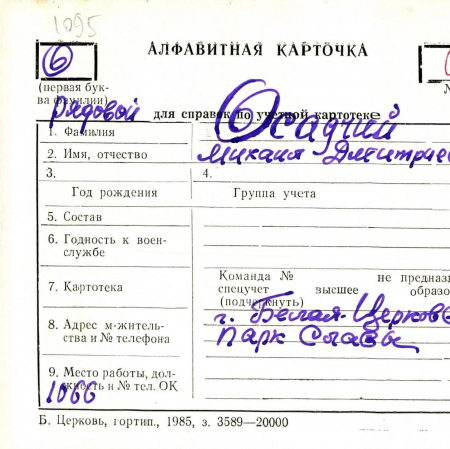 1095
б
АЛФАВИТНАЯ КАРТОЧКА
(первая бук-
ва фамилии)
рядовой
для справок по учетной картотеке
1. Фамилия Осадчий
2. Имя, отчество Михаил Дмитрие
3.
4.
Год рождения Группа учета
5. Состав
6. Годность к воен-
службе
7. Картотека
Команда № не предназ
спецучет высшее образо
(подчеркнуть)
8. Адрес м-житель-
ства и № телефона
г. Белая-Церковь
Парк Славы
9. Место работы, дол-
жность и № тел. ОК
1066
Б. Церковь, гортип., 1985, з. 3589—20000